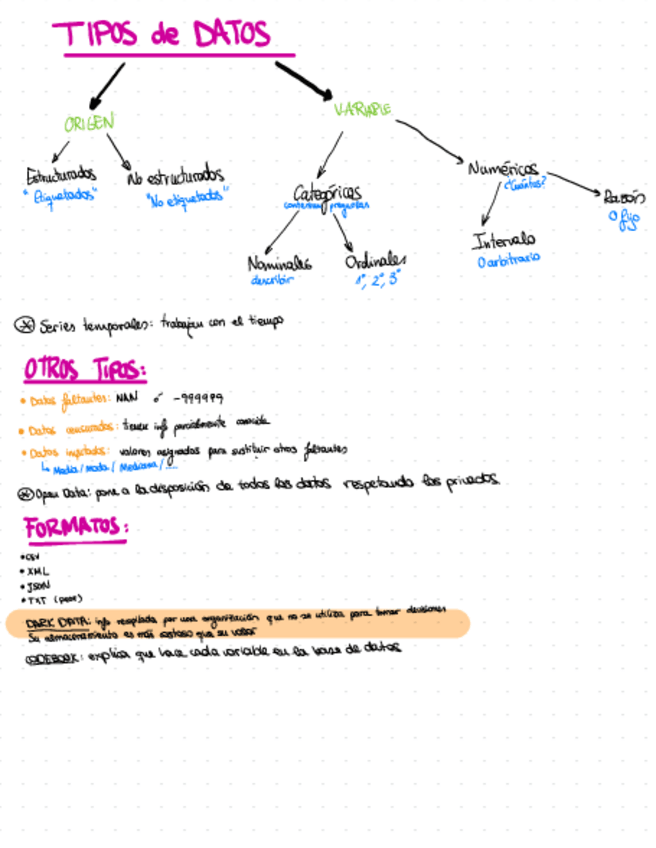 TIPOS de DATOS
ORIGEN
VARIABLE
Estructurados
"Etiquetados"
No estructurados
"No etiquetados"
Categóricas
contestan preguntas
Numéricas
¿Cuántos?
Razón
0 fijo
Nominales
describir
Ordinales
1º, 2º, 3º
Intervalo
0 arbitrario
* Series temporales: trabajan con el tiempo
OTROS TIPOS:
• Datos faltantes: NAN ó -999999
• Datos censurados: tienen info parcialmente conocida
• Datos imputados: valores asignados para sustituir otros faltantes
↳ Media/moda/Mediana/...
* Open Data: pone a la disposición de todos los datos respetando los privados.
FORMATOS:
• CSV
• XML
• JSON
• TXT (peor)
DARK DATA: info recopilada por una organización que no se utiliza para tomar decisiones
Su almacenamiento es más costoso que su valor
CODEBOOK: explica que hace cada variable en la base de datos